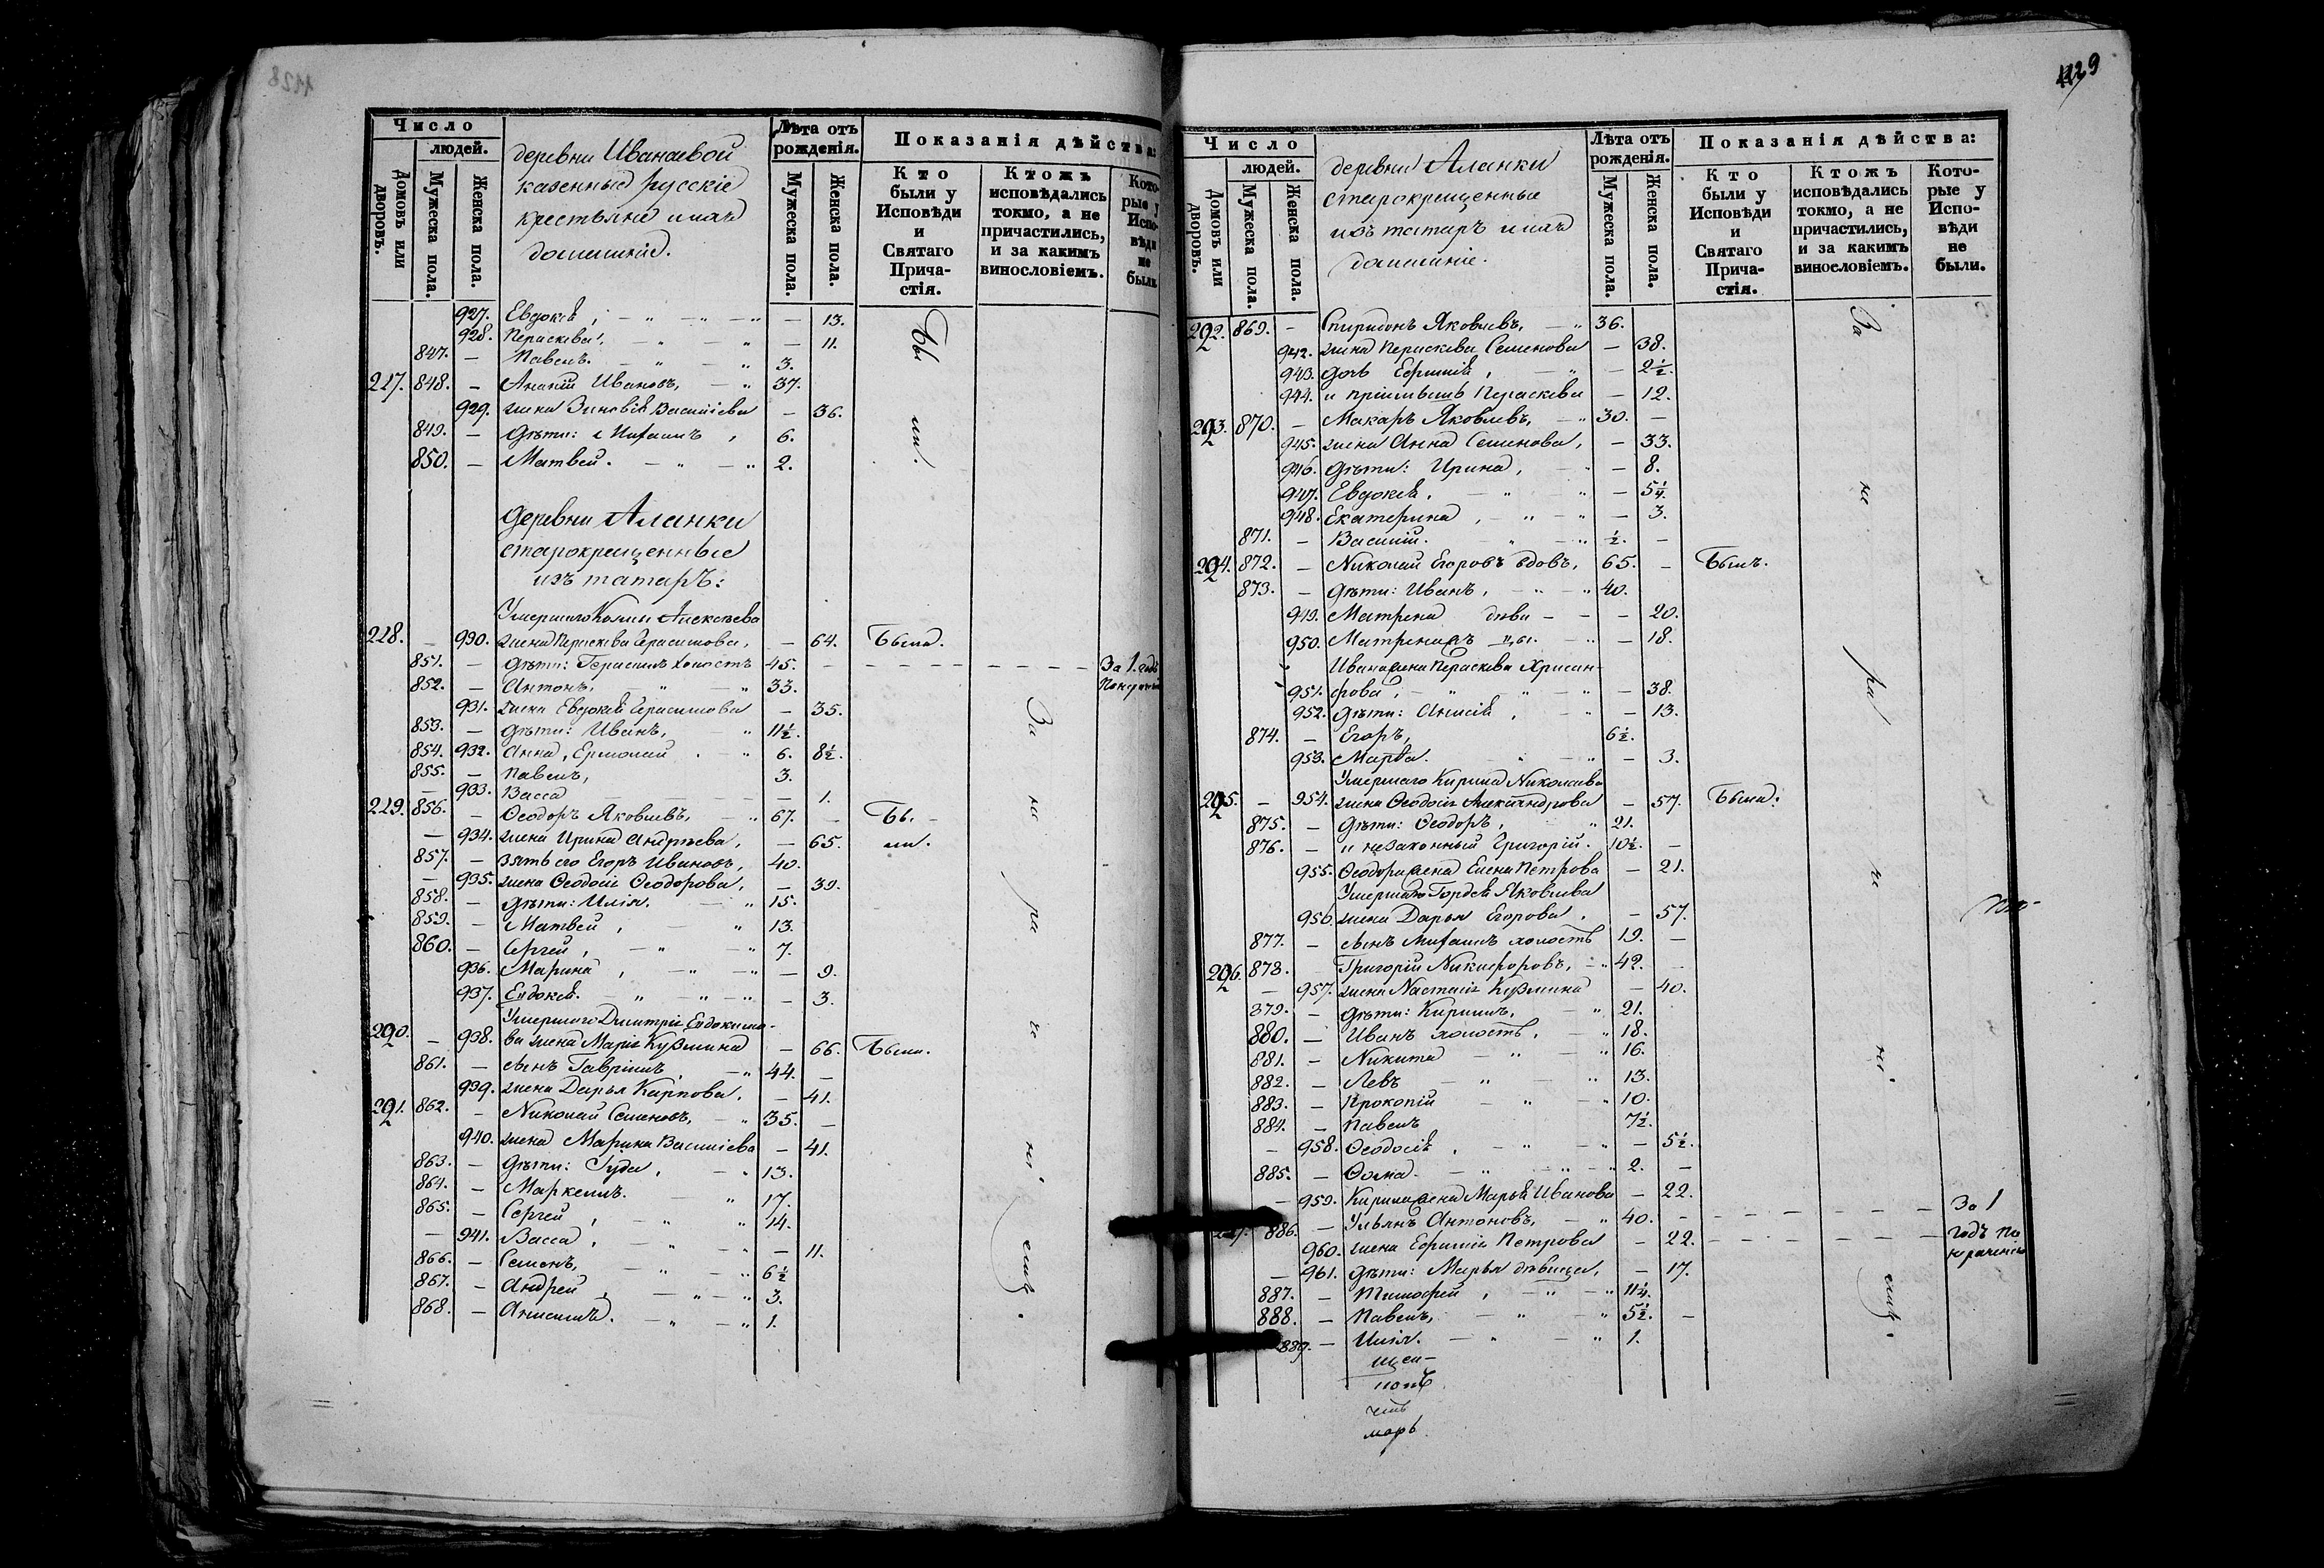 1128
Число
людей.
Домовъ или дворовъ.
Мужеска пола.
Женска пола.
деревни Иванаевой
казенныя русскіе
крестьяне и ихъ
домашнія.
Лѣта отъ рожденія.
Мужеска пола.
Женска пола.
Показанія дѣйства:
Кто были у Исповѣди и Святаго Причастія.
Ктожъ исповѣдались токмо, а не причастились, и за какимъ винословіемъ.
Которые у Исповѣди не были.
927. Евдокія, — 13.
928. Параскева, — 11.
847. — Павелъ. 3.
217. 848. — Ананій Ивановъ, 37.
929. жена Зиновія Василіева — 36.
849. — дѣти: Михаилъ, 6.
850. — Матвей. 2.
Были.
деревни Аланки
старокрещенные
изъ татаръ:
Умершаго Козмы Алексѣева
218. — 930. жена Параскева Герасимова, — 64. Была.
851. — дѣти: Герасимъ холостъ 45. — За 1. годъ
852. — Антонъ, 33.
931. жена Евдокія Герасимова — 35.
853. — дѣти: Иванъ, 11½.
854. 932. Анна, Ермолай 6. 8½.
855. — Павелъ, 3.
— 933. Васса — 1.
219. 856. — Ѳеодоръ Яковлевъ, 67. — Бы-
— 934. жена Ирина Андреева, — 65. ли.
857. — Зять его Егоръ Ивановъ, 40.
— 935. жена Ѳеодосія Ѳеодорова, — 39.
858. — дѣти: Илія. 15.
859. — Матвей, 13.
860. — Сергей, 7.
936. Марина, — 9.
937. Евдокія. — 3.
Умершаго Димитрія Евдокимо-
220. — 938. ва жена Марія Кузмина — 66. Была.
861. — сынъ Гавріилъ 44. —
939. жена Дарья Карпова, — 41.
221. 862. — Николай Семеновъ, 35. —
940. жена Марина Василіева — 41.
863. — дѣти: Іуда, 13.
864. — Маркеллъ. 17.
865. — Сергей, 14.
— 941. Васса, — 11.
866. — Семенъ, 6½
867. — Андрей, 3.
868. — Анисимъ. 1.
За не ра че ні емъ.
1129
Число
людей.
Домовъ или дворовъ.
Мужеска пола.
Женска пола.
деревни Аланки
старокрещенные
изъ татаръ и ихъ
домашніе.
Лѣта отъ рожденія.
Мужеска пола.
Женска пола.
Показанія дѣйства:
Кто были у Исповѣди и Святаго Причастія.
Ктожъ исповѣдались токмо, а не причастились, и за какимъ винословіемъ.
Которые у Исповѣди не были.
222. 869. — Спиридонъ Яковлевъ, 36.
942. жена Параскева Семенова — 38.
943. дочь Ефимія, — 2½.
944. и пріемышъ Параскева — 12.
223. 870. — Макаръ Яковлевъ, 30. —
945. жена Анна Семенова, — 33.
946. дѣти: Ирина, — 8.
947. Евдокія, — 5¼.
948. Екатерина, — 3.
871. — Василій. ½. —
224. 872. — Николай Егоровъ вдовъ, 65. — Былъ.
873. — дѣти: Иванъ, 40.
949. Матрена — 20.
950. — 18.
Ивана жена Параскева Хрисан-
951. фова, — 38.
952. дѣти: Анисія, — 13.
874. — Егоръ, 6½.
953. Марѳа. — 3.
Умершаго Кирила Николаева
225. — 954. жена Ѳеодосія Александрова — 57. Была.
875. — дѣти: Ѳеодоръ, 21.
876. — и незаконный Григорій. 10½. —
955. Ѳеодора жена Елена Петрова — 21.
Умершаго Гордея Яковлева
956. жена Дарья Егорова, — 57.
877. — сынъ Михаилъ холостъ 19. —
226. 878. Григорій Никифоровъ, 42. —
— 957. жена Настасія Кузмина — 40.
879. — дѣти: Кирилъ, 21.
880. — Иванъ холостъ, 18.
881. — Никита 16.
882. — Левъ 13.
883. — Прокопій 10.
884. — Павелъ 7½.
— 958. Ѳеодосія, — 5½.
885. — Ѳома. 2. —
— 959. Кирила жена Марья Иванова — 22.
227. 886. — Ульянъ Антоновъ, 40. — За 1
960. жена Ефимія Петрова — 22. — годъ по
— 961. дѣти: Марья дѣвица, — 17. нерачению
887. — Тимофей, 11¼.
888. — Павелъ, 5½. —
889. — Илія. 1.
За не ра че ні емъ.